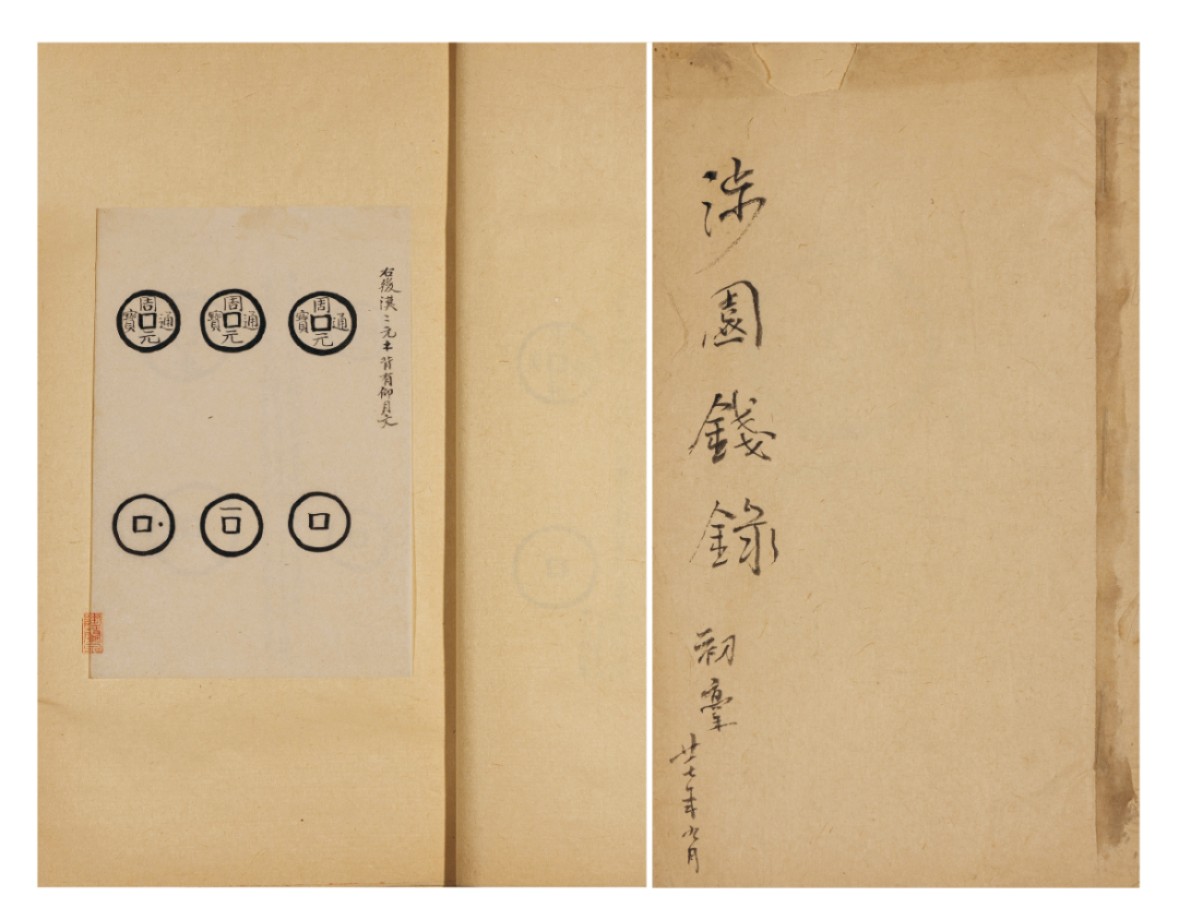 右後漢〻元 背有仰月文
周元通寶
周元通寶
周元通寶
一
涉園錢錄
初稾
廿七年九月